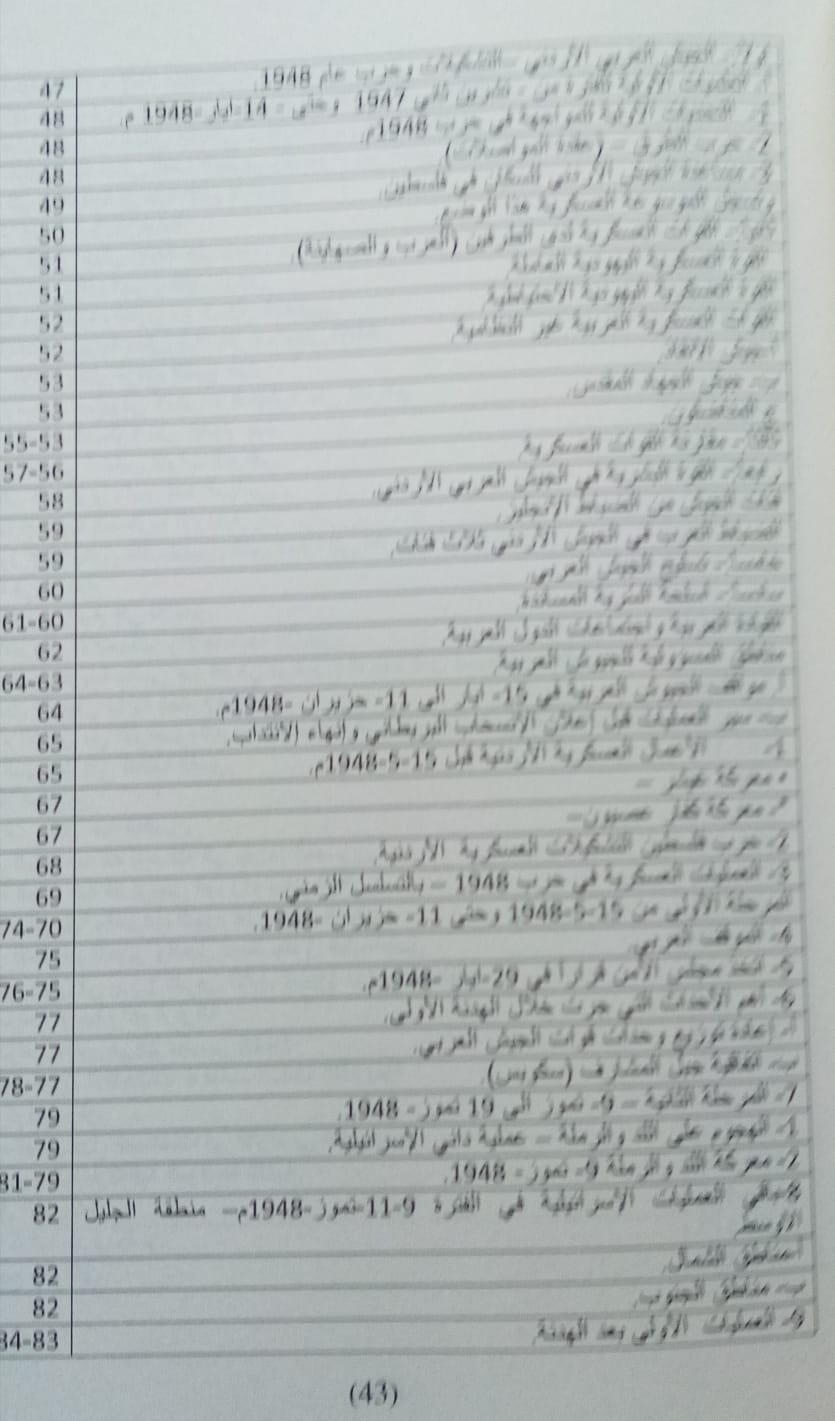 الجيش العربي الأردني – التشكيلات وحرب عام 1948. 47
العمليات الأولية للفترة من – تشرين ثاني 1947 وحتى – 14-ايار-1948 م. 48
العمليات الأولية للمواجهة في حرب 1948م. 48
2- حرب الطرق – (عقدة المواصلات) 48
3- مساعدة الجيش الأردني للسكان في فلسطين. 49
العسكرية هذا الوضع. 50
ثانياً- القوات العسكرية لدى الطرفين (العرب والصهاينة). 51
القوة العسكرية اليهودية العاملة. 51
القوة العسكرية اليهودية الاحتياطية. 52
القوات العسكرية العربية غير النظامية. 52
أ-جيش الإنقاذ. 53
ب- جيش الجهاد المقدس. 53
55-53
ثالثاً- مقارنة القوات العسكرية 57-56
رابعاً- القوة البشرية في الجيش العربي الأردني. 58
قادة الجيش من الضباط الإنجليز. 59
الضباط العرب في الجيش الأردني ثلاث فئات. 59
خامساً- تسليح الجيش العربي. 60
سادساً- أسلحة المساندة. 61-60
القيادة العربية واجتماعات الدول العربية. 62
مناطق المسؤولية للجيوش العربية. 64-63
أ- موقف الجيوش العربية في 15- ايار الى 11- حزيران -1948م. 64
ب- سير العمليات قبل إعلان الانسحاب البريطاني وإنهاء الانتداب. 65
1- الأعمال العسكرية الأردنية قبل 15-5-1948م. 65
معركة – 67
معركة كفار عصيون– 67
2- حرب فلسطين التشكيلات العسكرية الأردنية. 68
3- العمليات العسكرية في حرب 1948 – بالتسلسل الزمني. 69
المرحلة الأولى من 15-5-1948 وحتى 11- حزيران -1948. 74-70
4- الموقف العربي. 75
5- اتخذ مجلس الأمن قراراً في 29-ايار -1948م. 76-75
6- أهم الأحداث التي جرت خلال الهدنة الأولى. 77
أ- إعادة توزيع وحدات قوات الجيش العربي. 77
ب- اتفاقية جبل المشارف (سكوبس). 78-77
7- المرحلة الثانية – 9- تموز الى 19 تموز- 1948. 79
1- الهجوم على اللد والرملة – عملية داني الإسرائيلية. 79
2- معركة اللد والرملة 9- تموز- 1948. 81-79
العمليات الإسرائيلية في الفترة 9-11-تموز-1948م– منطقة الجليل 82
أ-مناطق الشمال. 82
ب- مناطق الجنوب. 82
العمليات الأولى بعد الهدنة 84-83
(43)